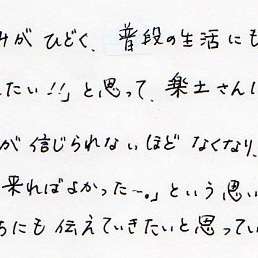 みが ひどく、普段の生活にも
たい!!」と思って、楽土さんに
が信じられないほど なくなり、
来ればよかった~。」という思い
ちにも 伝えていきたいと思ってい